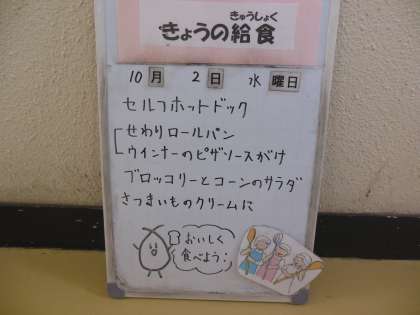 きゅうしょく
きょうの給食
10月 2日 水曜日
セルフホットドック
せわりロールパン
ウインナーのピザソースがけ
ブロッコリーとコーンのサラダ
さつまいものクリームに
おいしく
食べよう!